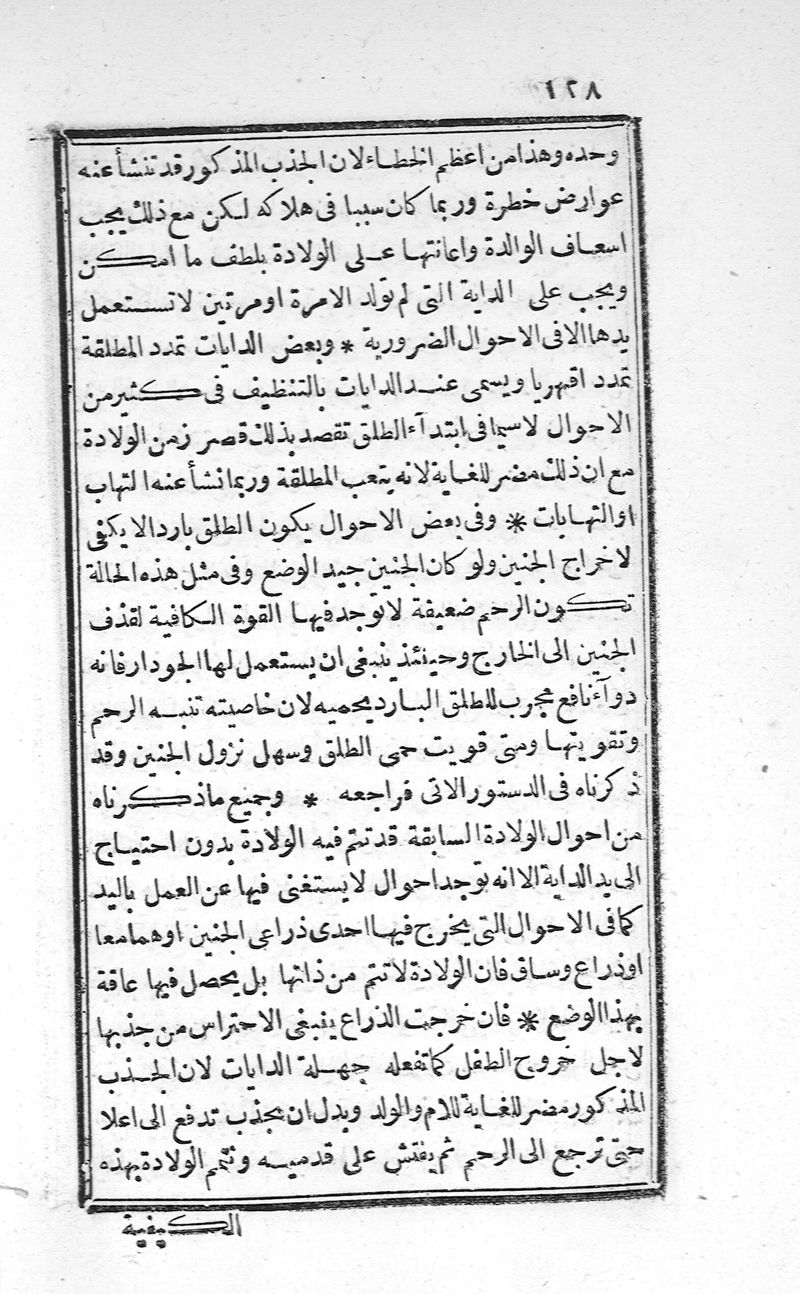 ١٢٨
وحده وهذا من اعظم الخطاء لان الجذب المذكور قد تنشأ عنه
عوارض خطرة وربما كان سببا فى هلاكه لكن مع ذلك يجب
اسعاف الوالدة واعانتها على الولادة بلطف ما امكن
ويجب على الداية التى لم تولد الامرة او مرتين لا تستعمل
يدها الا فى الاحوال الضرورية * وبعض الدايات تمدد المطلقة
تمددا قهريا ويسمى عند الدايات بالتنظيف فى كثير من
الاحوال لاسيما فى ابتدآء الطلق تقصد بذلك قصر زمن الولادة
مع ان ذلك مضر للغاية لانه يتعب المطلقة وربما نشأ عنه التهاب
او التهابات * وفى بعض الاحوال يكون الطلق باردا لا يكفى
لاخراج الجنين ولو كان الجنين جيد الوضع وفى مثل هذه الحالة
تكون الرحم ضعيفة لا توجد فيها القوة الكافية لقذف
الجنين الى الخارج وحينئذ ينبغى ان يستعمل لها الجودار فانه
دوآء نافع مجرب للطلق البارد يحميه لان خاصيته تنبه الرحم
وتقويتها ومتى قويت حمى الطلق وسهل نزول الجنين وقد
ذكرناه فى الدستور الاتى فراجعه * وجميع ما ذكرناه
من احوال الولادة السابقة قد تتم فيه الولادة بدون احتياج
الى يد الداية الا انه توجد احوال لا يستغنى فيها عن العمل باليد
كما فى الاحوال التى يخرج فيها احدى ذراعى الجنين او هما معا
او ذراع وساق فان الولادة لا تتم من ذاتها بل يحصل فيها عاقة
بهذا الوضع * فان خرجت الذراع ينبغى الاحتراس من جذبها
لاجل خروج الطفل كما تفعله جهلة الدايات لان الجذب
المذكور مضر للغاية للام والولد وبدل ان يجذب تدفع الى اعلا
حتى ترجع الى الرحم ثم يفتش على قدميه وتتم الولادة بهذه
الكيفية